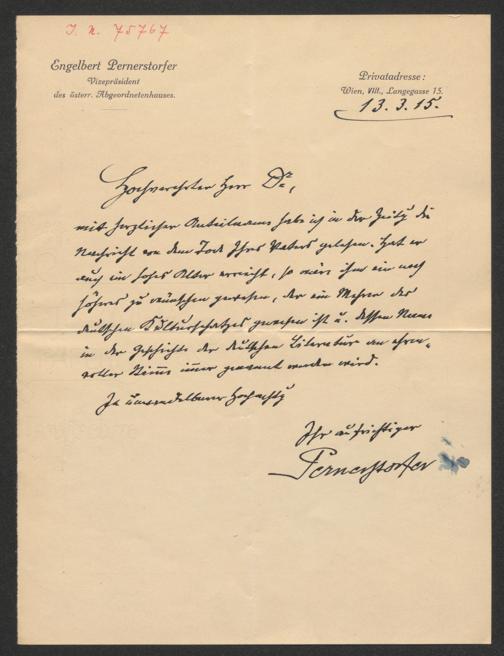 I. N. 75767
Engelbert Pernerstorfer
Vizepräsident
des österr. Abgeordnetenhauses.
Privatadresse:
Wien, VIII., Langegasse 15.
13. 3. 15.
Hochverehrter Herr Dr.,
mit herzlicher Anteilnahme habe ich in der Zeitg die
Nachricht von dem Tode Ihres Vaters gelesen. Hat er
auch ein hohes Alter erreicht, so wäre ihm ein noch
höheres zu wünschen gewesen, der ein Mehrer des
deutschen Kulturschatzes gewesen ist u. dessen Name
in der Geschichte der deutschen Literatur an ehren-
voller immer genannt werden wird.
In unwandelbarer Hochachtg
Ihr aufrichtiger
Pernerstorfer